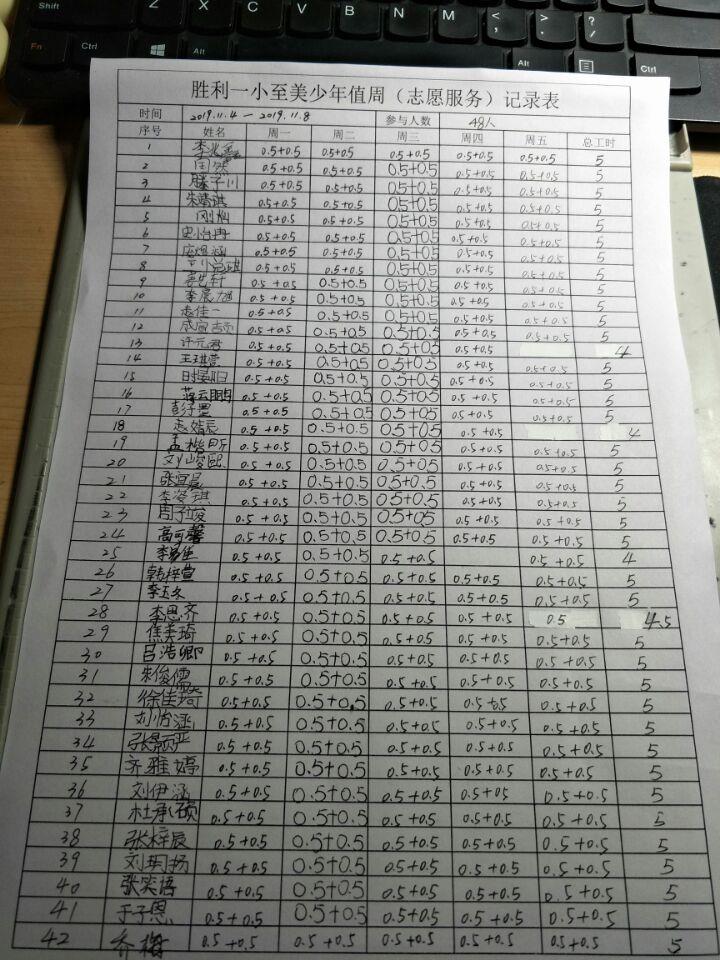 Shift
Z
X
C
V
B
N
M
Fn
Ctrl
Alt
Alt
Ctrl
胜利一小至美少年值周（志愿服务）记录表
时间 2019.11.4 — 2019.11.8 参与人数 48人
序号 姓名 周一 周二 周三 周四 周五 总工时
1 0.5+0.5 0.5+0.5 0.5+0.5 0.5+0.5 0.5+0.5 5
2 0.5+0.5 0.5+0.5 0.5+0.5 0.5+0.5 0.5+0.5 5
3 滕子川 0.5+0.5 0.5+0.5 0.5+0.5 0.5+0.5 0.5+0.5 5
4 朱靖琪 0.5+0.5 0.5+0.5 0.5+0.5 0.5+0.5 0.5+0.5 5
5 0.5+0.5 0.5+0.5 0.5+0.5 0.5+0.5 0.5+0.5 5
6 史怡冉 0.5+0.5 0.5+0.5 0.5+0.5 0.5+0.5 0.5+0.5 5
7 0.5+0.5 0.5+0.5 0.5+0.5 0.5+0.5 0.5+0.5 5
8 0.5+0.5 0.5+0.5 0.5+0.5 0.5+0.5 0.5+0.5 5
9 0.5+0.5 0.5+0.5 0.5+0.5 0.5+0.5 0.5+0.5 5
10 0.5+0.5 0.5+0.5 0.5+0.5 0.5+0.5 0.5+0.5 5
11 0.5+0.5 0.5+0.5 0.5+0.5 0.5+0.5 0.5+0.5 5
12 0.5+0.5 0.5+0.5 0.5+0.5 0.5+0.5 0.5+0.5 5
13 许元君 0.5+0.5 0.5+0.5 0.5+0.5 0.5+0.5 4
14 王琪萱 0.5+0.5 0.5+0.5 0.5+0.5 0.5+0.5 0.5+0.5 5
15 时晏阳 0.5+0.5 0.5+0.5 0.5+0.5 0.5+0.5 0.5+0.5 5
16 蒋云鹏 0.5+0.5 0.5+0.5 0.5+0.5 0.5+0.5 0.5+0.5 5
17 彭子墨 0.5+0.5 0.5+0.5 0.5+0.5 0.5+0.5 0.5+0.5 5
18 0.5+0.5 0.5+0.5 0.5+0.5 0.5+0.5 4
19 0.5+0.5 0.5+0.5 0.5+0.5 0.5+0.5 0.5+0.5 5
20 刘峻熙 0.5+0.5 0.5+0.5 0.5+0.5 0.5+0.5 0.5+0.5 5
21 张宜晨 0.5+0.5 0.5+0.5 0.5+0.5 0.5+0.5 0.5+0.5 5
22 0.5+0.5 0.5+0.5 0.5+0.5 0.5+0.5 0.5+0.5 5
23 周子竣 0.5+0.5 0.5+0.5 0.5+0.5 0.5+0.5 0.5+0.5 5
24 高可馨 0.5+0.5 0.5+0.5 0.5+0.5 0.5+0.5 0.5+0.5 5
25 0.5+0.5 0.5+0.5 0.5+0.5 0.5+0.5 4
26 韩梓萱 0.5+0.5 0.5+0.5 0.5+0.5 0.5+0.5 0.5+0.5 5
27 0.5+0.5 0.5+0.5 0.5+0.5 0.5+0.5 0.5+0.5 5
28 李思齐 0.5+0.5 0.5+0.5 0.5+0.5 0.5+0.5 0.5 4.5
29 焦美琦 0.5+0.5 0.5+0.5 0.5+0.5 0.5+0.5 0.5+0.5 5
30 吕浩卿 0.5+0.5 0.5+0.5 0.5+0.5 0.5+0.5 0.5+0.5 5
31 朱俊儒 0.5+0.5 0.5+0.5 0.5+0.5 0.5+0.5 0.5+0.5 5
32 徐佳琦 0.5+0.5 0.5+0.5 0.5+0.5 0.5+0.5 0.5+0.5 5
33 刘怡涵 0.5+0.5 0.5+0.5 0.5+0.5 0.5+0.5 0.5+0.5 5
34 0.5+0.5 0.5+0.5 0.5+0.5 0.5+0.5 0.5+0.5 5
35 齐雅婷 0.5+0.5 0.5+0.5 0.5+0.5 0.5+0.5 0.5+0.5 5
36 刘伊涵 0.5+0.5 0.5+0.5 0.5+0.5 0.5+0.5 0.5+0.5 5
37 杜承硕 0.5+0.5 0.5+0.5 0.5+0.5 0.5+0.5 0.5+0.5 5
38 张梓辰 0.5+0.5 0.5+0.5 0.5+0.5 0.5+0.5 0.5+0.5 5
39 刘玥扬 0.5+0.5 0.5+0.5 0.5+0.5 0.5+0.5 0.5+0.5 5
40 张奕语 0.5+0.5 0.5+0.5 0.5+0.5 0.5+0.5 0.5+0.5 5
41 于子恩 0.5+0.5 0.5+0.5 0.5+0.5 0.5+0.5 0.5+0.5 5
42 0.5+0.5 0.5+0.5 0.5+0.5 0.5+0.5 0.5+0.5 5